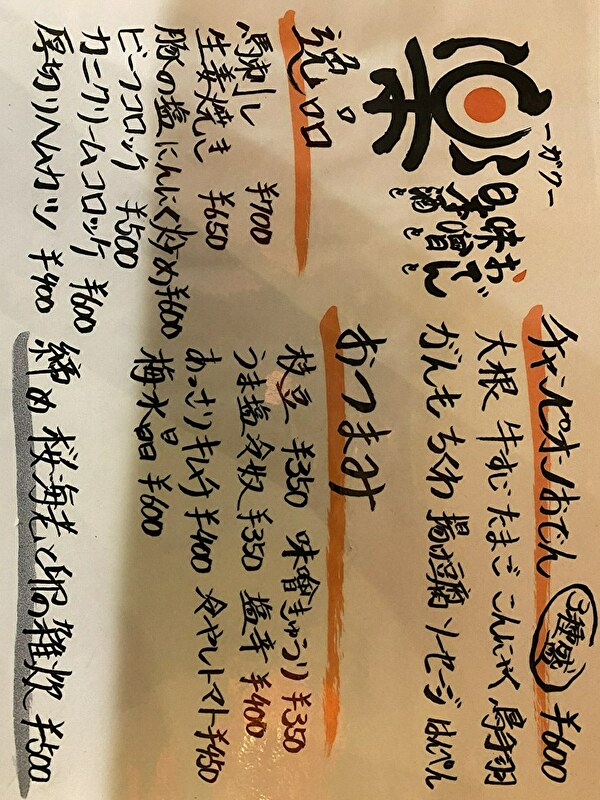 楽
ーガクー
おでん
味噌と
日本酒と
チャンピオンおでん 3種盛 ¥600
大根 牛すじ たまご こんにゃく 鳥手羽
がんも ちくわ 揚げ豆腐 ソーセージ はんぺん
逸品
馬刺し ¥700
生姜焼き ¥650
豚の塩にんにく炒め ¥600
ビーフコロッケ ¥500
カニクリームコロッケ ¥600
厚切りハムカツ ¥400
おつまみ
枝豆 ¥350 味噌きゅうり ¥350
うま塩冷奴 ¥350 塩辛 ¥400
あっさりキムチ ¥400 冷やしトマト ¥450
梅水晶 ¥600
締め 桜海老と卵の雑炊 ¥500